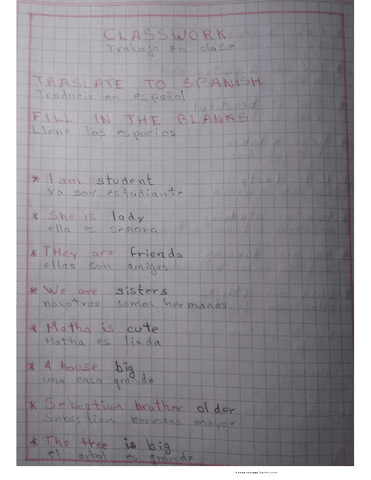 CLASSWORK
Trabajo en clase
TRASLATE TO SPANISH
Traducir en español
FILL IN THE BLANKS
Llene los espacios
* I am student
Yo soy estudiante
* She is lady
ella es señora
* THey are friends
ellas son amigas
* We are sisters
nosotras somos hermanas
* Matha is cute
Matha es linda
* A house big
una casa grande
* Sebastian brother older
Sebastian hermano mayor
* The tree is big
el arbol es grande